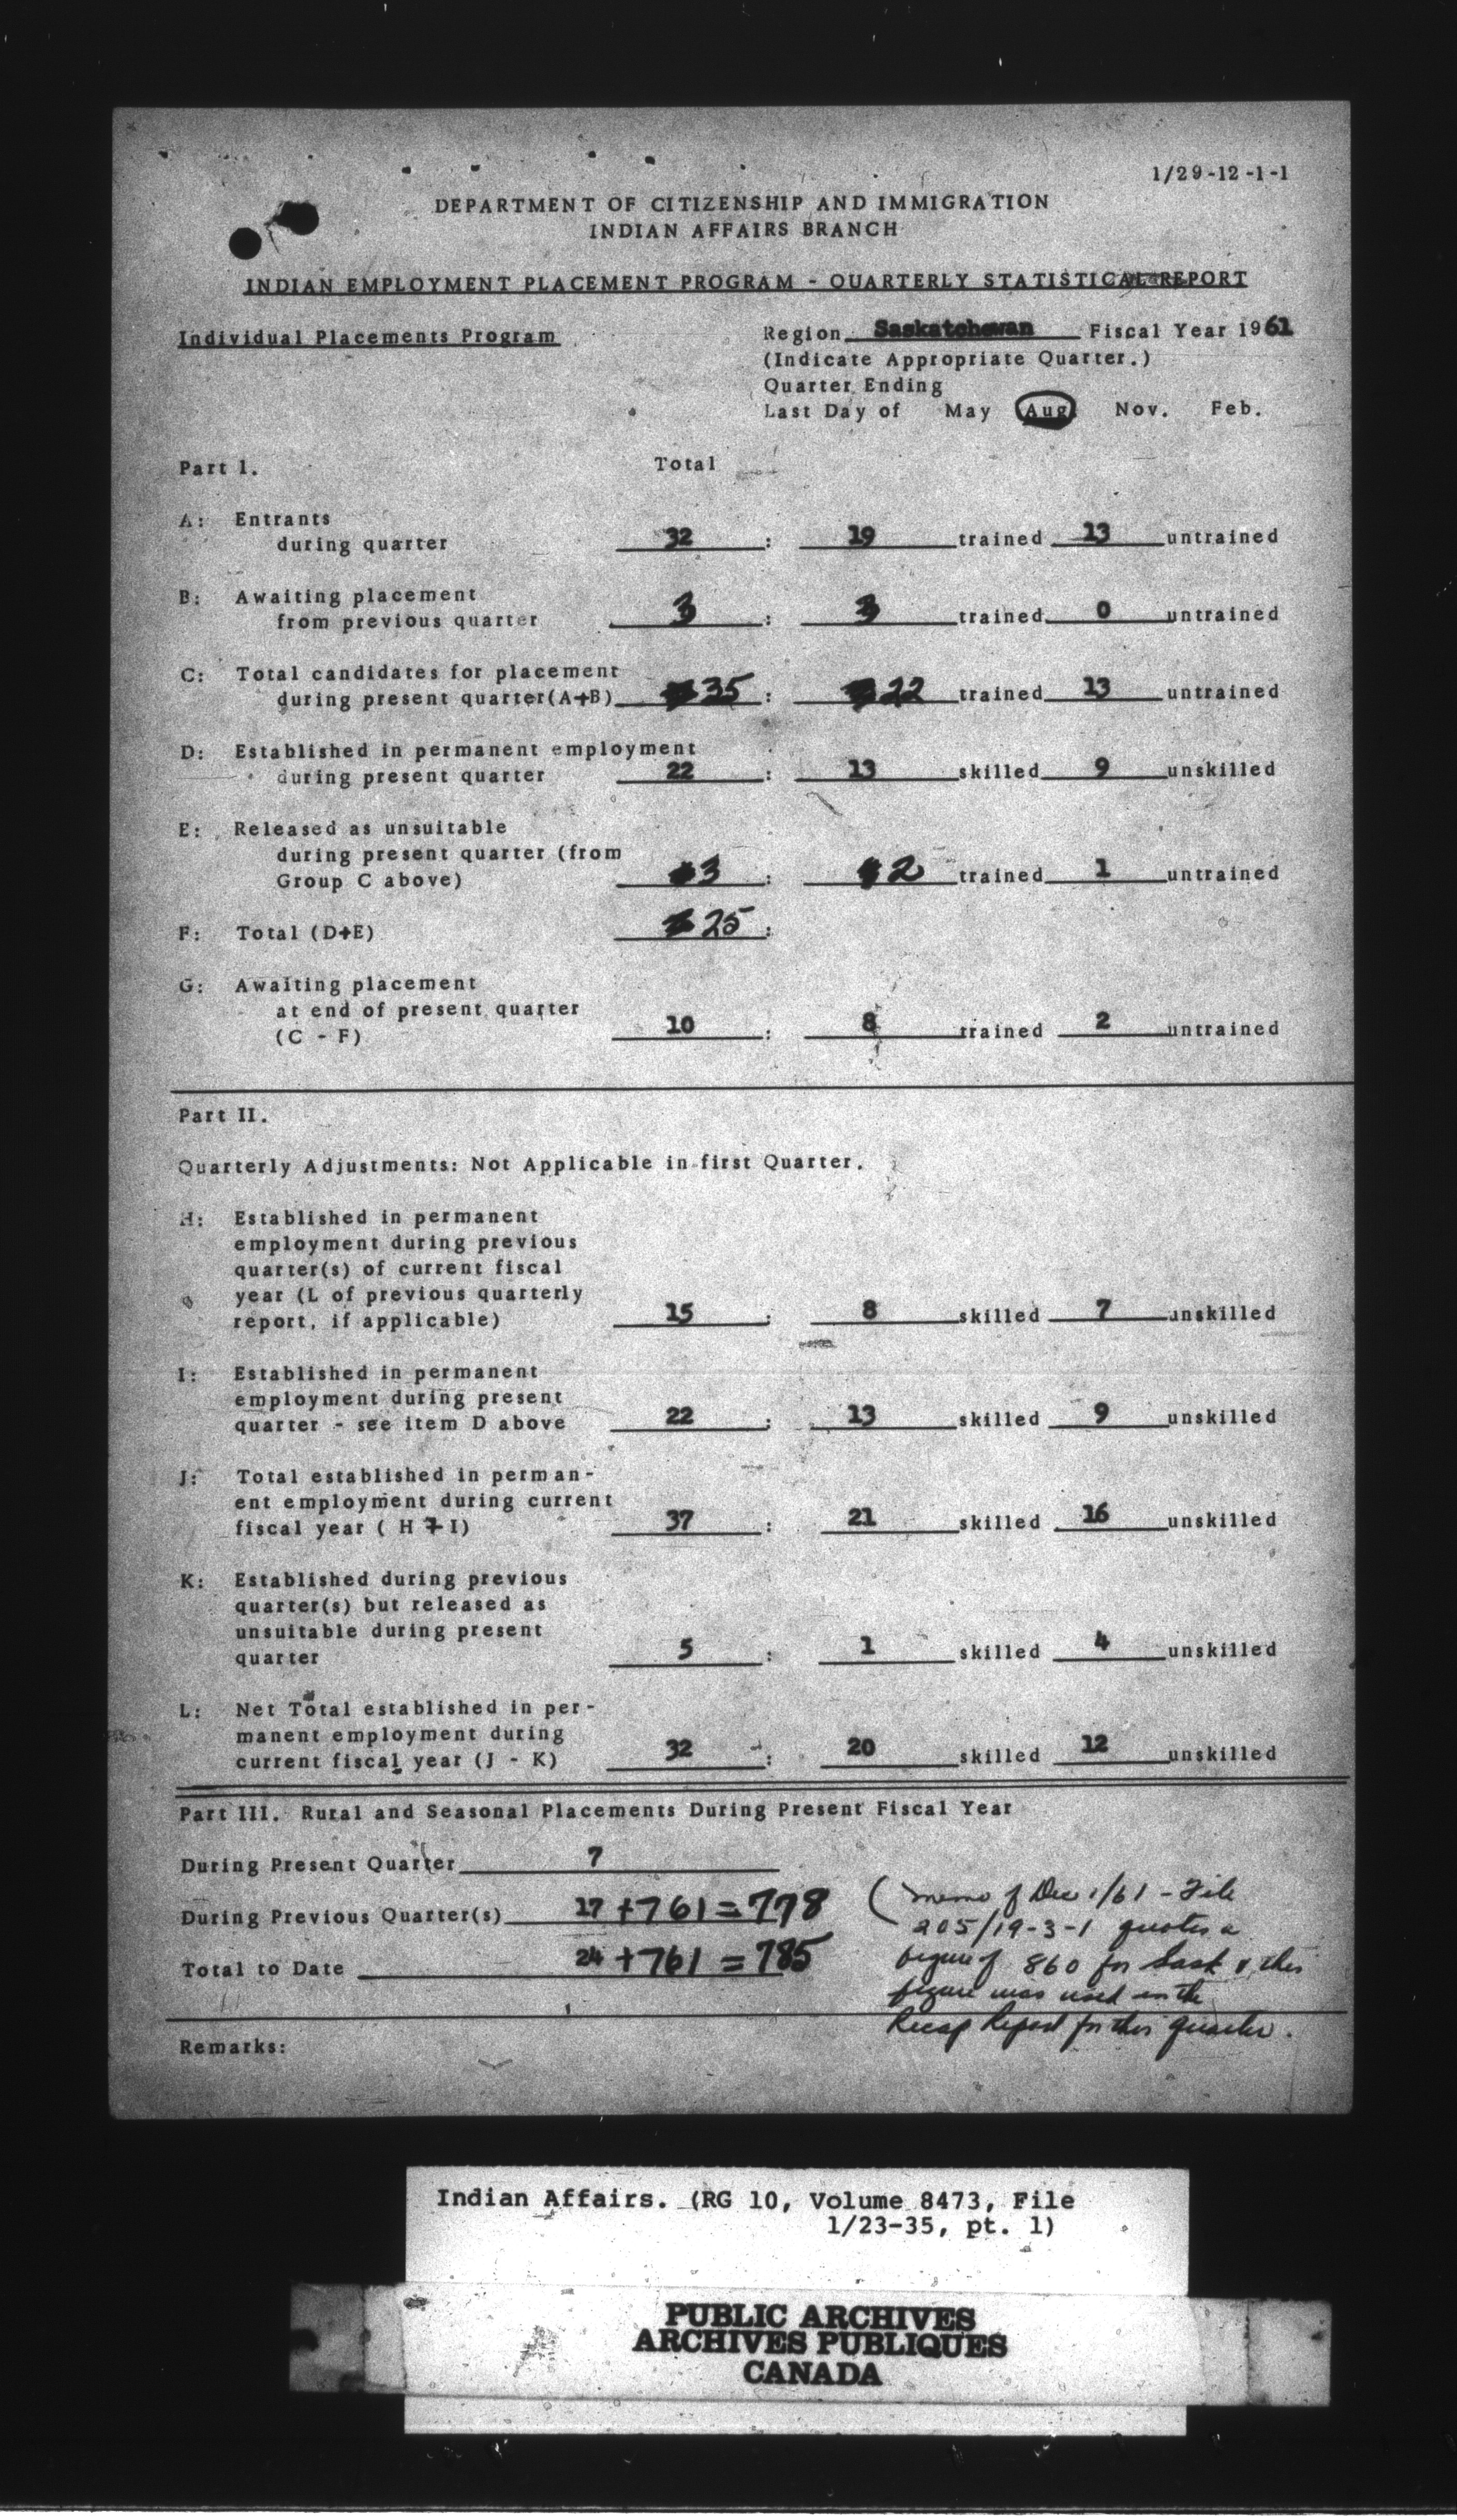 1/29-12-1-1
DEPARTMENT OF CITIZENSHIP AND IMMIGRATION
INDIAN AFFAIRS BRANCH
INDIAN EMPLOYMENT PLACEMENT PROGRAM - QUARTERLY STATISTICAL REPORT
Individual Placements Program
Region Saskatchewan Fiscal Year 1961
(Indicate Appropriate Quarter.)
Quarter Ending
Last Day of May Aug. Nov. Feb.
Part I. Total
A: Entrants
during quarter 32 : 19 trained 13 untrained
B: Awaiting placement
from previous quarter 3 : 3 trained 0 untrained
C: Total candidates for placement
during present quarter(A+B) 35 : 22 trained 13 untrained
D: Established in permanent employment
during present quarter 22 : 13 skilled 9 unskilled
E: Released as unsuitable
during present quarter (from
Group C above) 3 : 2 trained 1 untrained
F: Total (D+E) 25 :
G: Awaiting placement
at end of present quarter
(C - F) 10 : 8 trained 2 untrained
Part II.
Quarterly Adjustments: Not Applicable in first Quarter.
H: Established in permanent
employment during previous
quarter(s) of current fiscal
year (L of previous quarterly
report, if applicable) 15 : 8 skilled 7 unskilled
I: Established in permanent
employment during present
quarter - see item D above 22 : 13 skilled 9 unskilled
J: Total established in perman-
ent employment during current
fiscal year ( H + I) 37 : 21 skilled 16 unskilled
K: Established during previous
quarter(s) but released as
unsuitable during present
quarter 5 : 1 skilled 4 unskilled
L: Net Total established in per-
manent employment during
current fiscal year (J - K) 32 : 20 skilled 12 unskilled
Part III. Rural and Seasonal Placements During Present Fiscal Year
During Present Quarter 7
During Previous Quarter(s) 17 + 761 = 778
Total to Date 24 + 761 = 785
(memo of Dec 1/61 - File
205/19-3-1 quotes a
figure of 860 for Sask & this
figure was used in the
Recap Report for this quarter.
Remarks:
Indian Affairs. (RG 10, Volume 8473, File
1/23-35, pt. 1)
PUBLIC ARCHIVES
ARCHIVES PUBLIQUES
CANADA